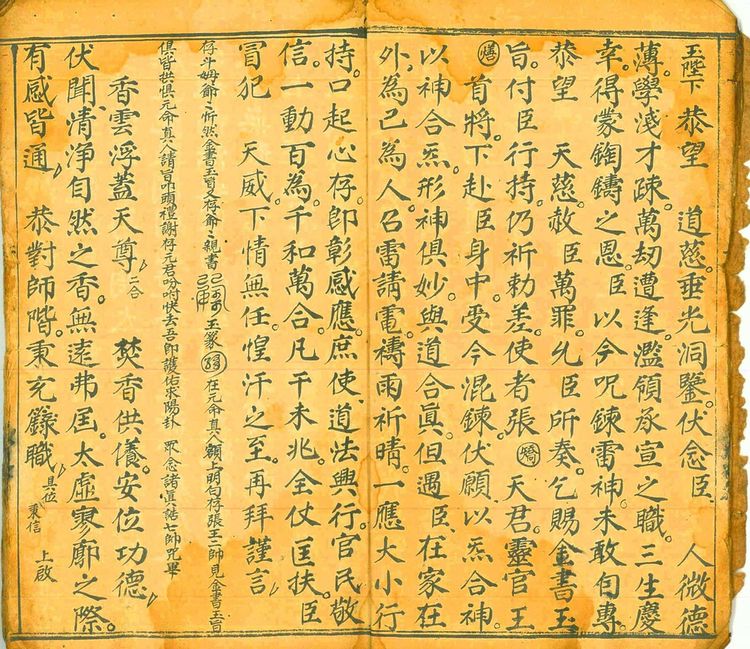 玉陛下 恭望 道慈。垂光洞鑒。伏念臣 人微德
薄。學淺才疎。萬劫遭逢。濫領承宣之職。三生慶
幸。得蒙鋾鑄之恩。臣以今呪鍊雷神。未敢自專。
恭望 天慈。赦臣萬罪。允臣所奏。乞賜金書玉
旨。付臣行持。仍祈勑差使者張 天君靈官王
首將。下赴臣身中。受今混鍊。伏願以炁合神。
以神合炁。形神俱妙。與道合真。但遇臣在家在
外。為己為人。召雷請電。禱雨祈晴。一應大小行
持。口起心存。即彰感應。庶使道法興行。官民敬
信。一動百為。千和萬合。凡干未兆。全仗匡扶。臣
冒犯 天威。下情無任。惶汗之至。再拜謹言
存斗姆爺〻忻然金書玉旨又存爺〻親書 玉篆 在元命真人顖上明白存張王二帥見金書玉旨
俱皆拱惧元命真人請旨叩頭禮謝存元君吩咐快去吾即護佑求陽卦 眾念諸真誥七師咒畢
香雲浮蓋天尊 二合 焚香供養。安位功德
伏聞。清淨自然之香。無遠弗屆。太虛寥廓之際。
有感皆通 恭對師階。秉充籙職 具位 秉信 上啟